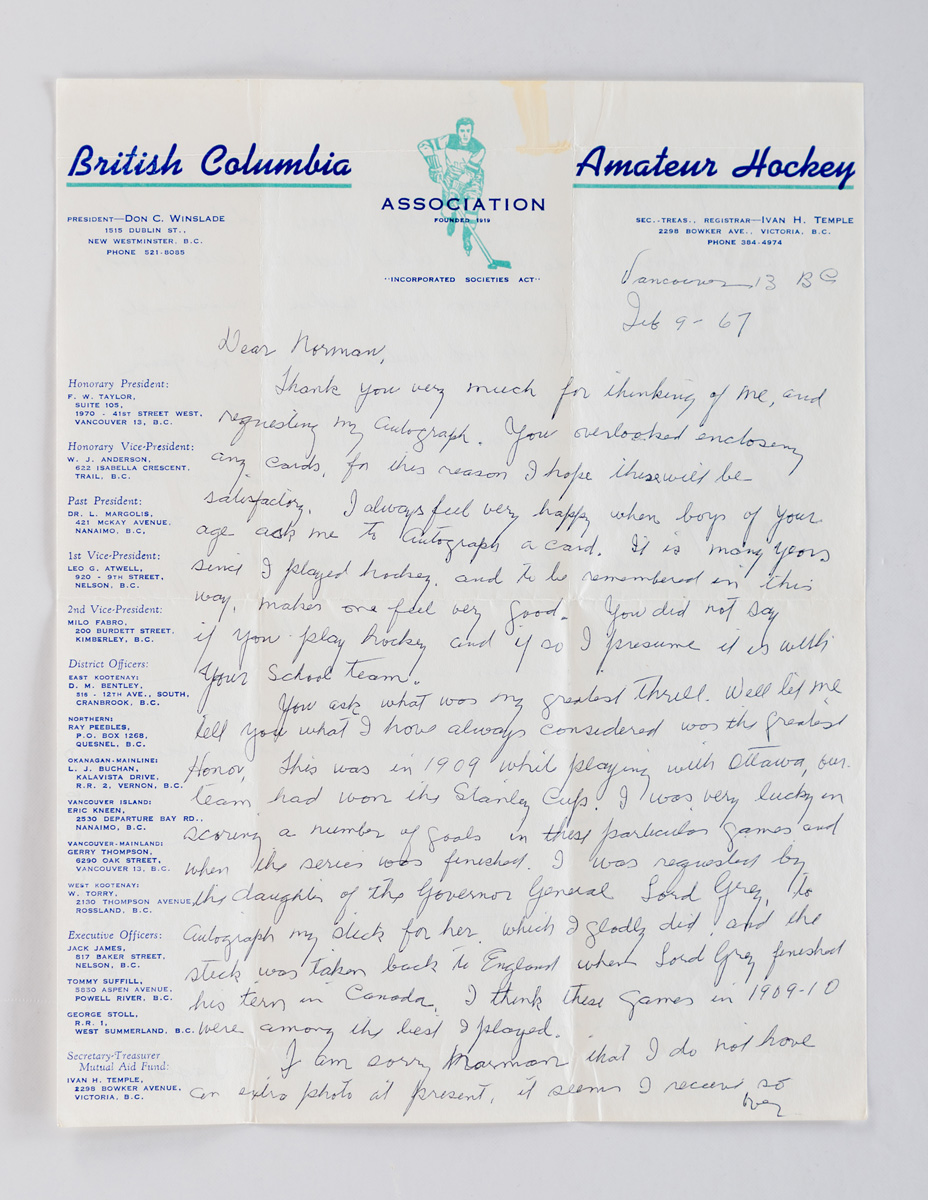 British Columbia
Amateur Hockey
ASSOCIATION
FOUNDED 1919
"INCORPORATED SOCIETIES ACT"
PRESIDENT—DON C. WINSLADE
1515 DUBLIN ST.,
NEW WESTMINSTER, B.C.
PHONE 521-8085
SEC.-TREAS., REGISTRAR—IVAN H. TEMPLE
2298 BOWKER AVE., VICTORIA, B.C.
PHONE 384-4974
Honorary President:
F. W. TAYLOR,
SUITE 105,
1970 - 41ST STREET WEST,
VANCOUVER 13, B.C.
Honorary Vice-President:
W. J. ANDERSON,
622 ISABELLA CRESCENT,
TRAIL, B.C.
Past President:
DR. L. MARGOLIS,
421 MCKAY AVENUE,
NANAIMO, B.C.
1st Vice-President:
LEO G. ATWELL,
920 - 9TH STREET,
NELSON, B.C.
2nd Vice-President:
MILO FABRO,
200 BURDETT STREET.
KIMBERLEY, B.C.
District Officers:
EAST KOOTENAY:
D. M. BENTLEY,
516 - 12TH AVE., SOUTH,
CRANBROOK, B.C.
NORTHERN:
RAY PEEBLES,
P.O. BOX 1268,
QUESNEL, B.C.
OKANAGAN-MAINLINE:
L. J. BUCHAN,
KALAVISTA DRIVE,
R.R. 2, VERNON, B.C.
VANCOUVER ISLAND:
ERIC KNEEN,
2530 DEPARTURE BAY RD.,
NANAIMO, B.C.
VANCOUVER-MAINLAND:
GERRY THOMPSON,
6290 OAK STREET,
VANCOUVER 13, B.C.
WEST KOOTENAY:
W. TORRY,
2130 THOMPSON AVENUE,
ROSSLAND, B.C.
Executive Officers:
JACK JAMES,
517 BAKER STREET,
NELSON, B.C.
TOMMY SUFFILL,
5830 ASPEN AVENUE,
POWELL RIVER, B.C.
GEORGE STOLL,
R.R. 1,
WEST SUMMERLAND, B.C.
Secretary-Treasurer
Mutual Aid Fund:
IVAN H. TEMPLE,
2298 BOWKER AVENUE,
VICTORIA, B.C.
Vancouver 13 BC
Feb 9 - 67
Dear Norman,
Thank you very much for thinking of me, and
requesting my Autograph. You overlooked enclosing
any cards, for this reason I hope these will be
satisfactory. I always feel very happy when boys of your
age ask me to Autograph a card. It is many years
since I played hockey, and to be remembered in this
way, makes one feel very good. You did not say
if you play hockey and if so I presume it is with
Your School team.
You ask what was my greatest thrill. Well let me
tell you what I have always considered was the greatest
Honor, This was in 1909 whil playing with Ottawa, our
team had won the Stanley Cup. I was very lucky in
scoring a number of goals in these particular games and
when the series was finished. I was requested by
the daughter of the Governor General Lord Grey, to
Autograph my stick for her, which I gladly did, and the
stick was taken back to England when Lord Grey finished
his term in Canada, I think these games in 1909-10
were among the best I played.
I am sorry Norman that I do not have
an extra photo at present, it seems I receive so